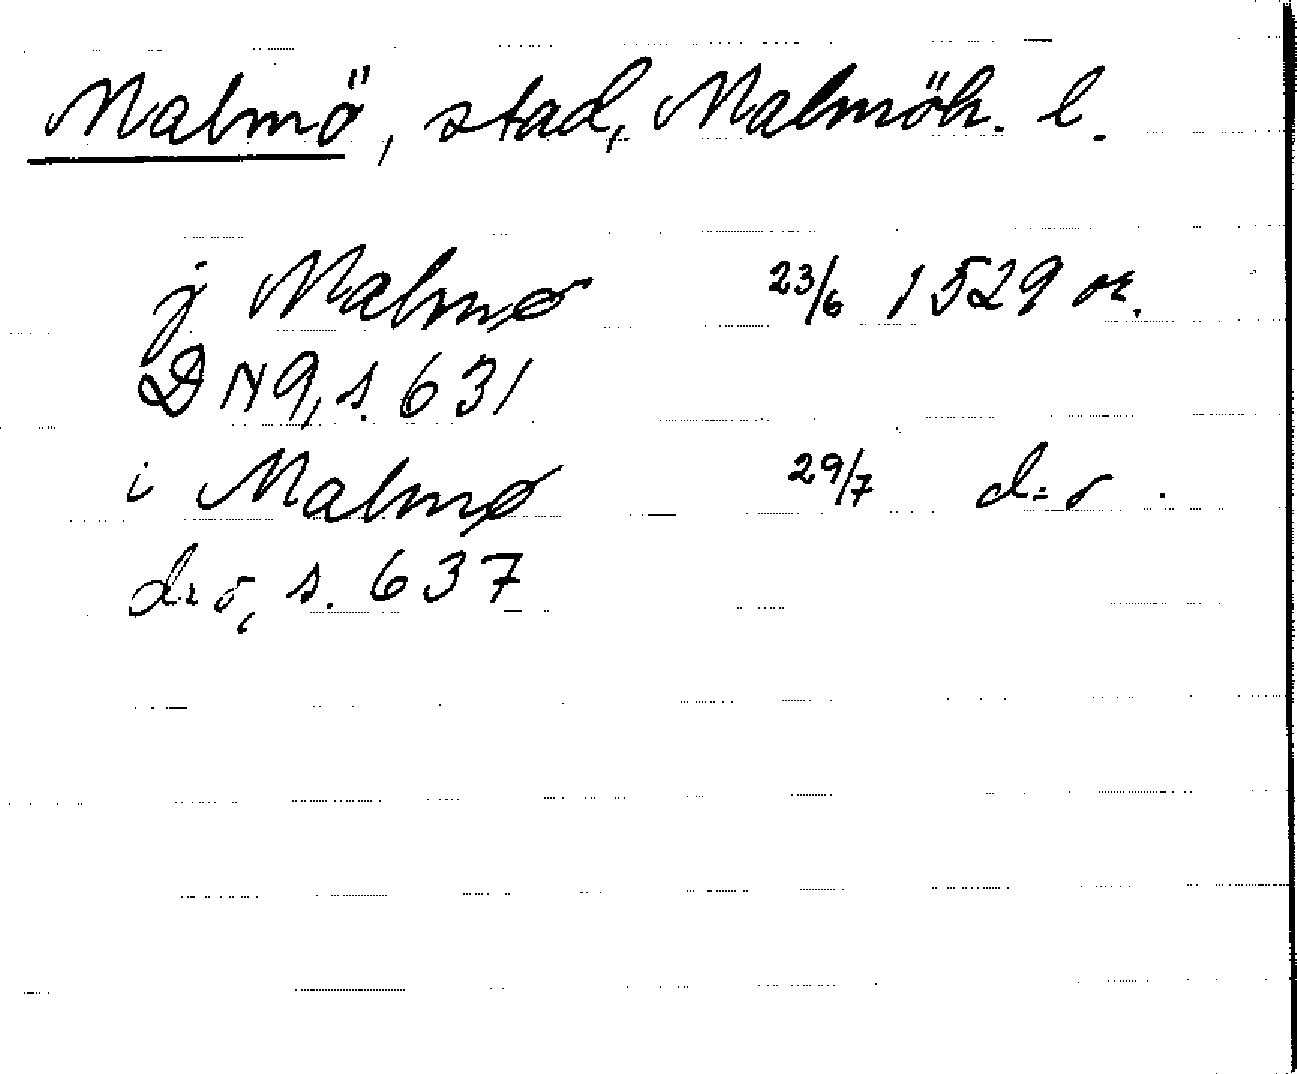 Malmö, stad, Malmöh. l.
j Malmø 23/6 1529 or.
DN 9, s. 631
i Malmø 29/7 d:o.
d:o, s. 637